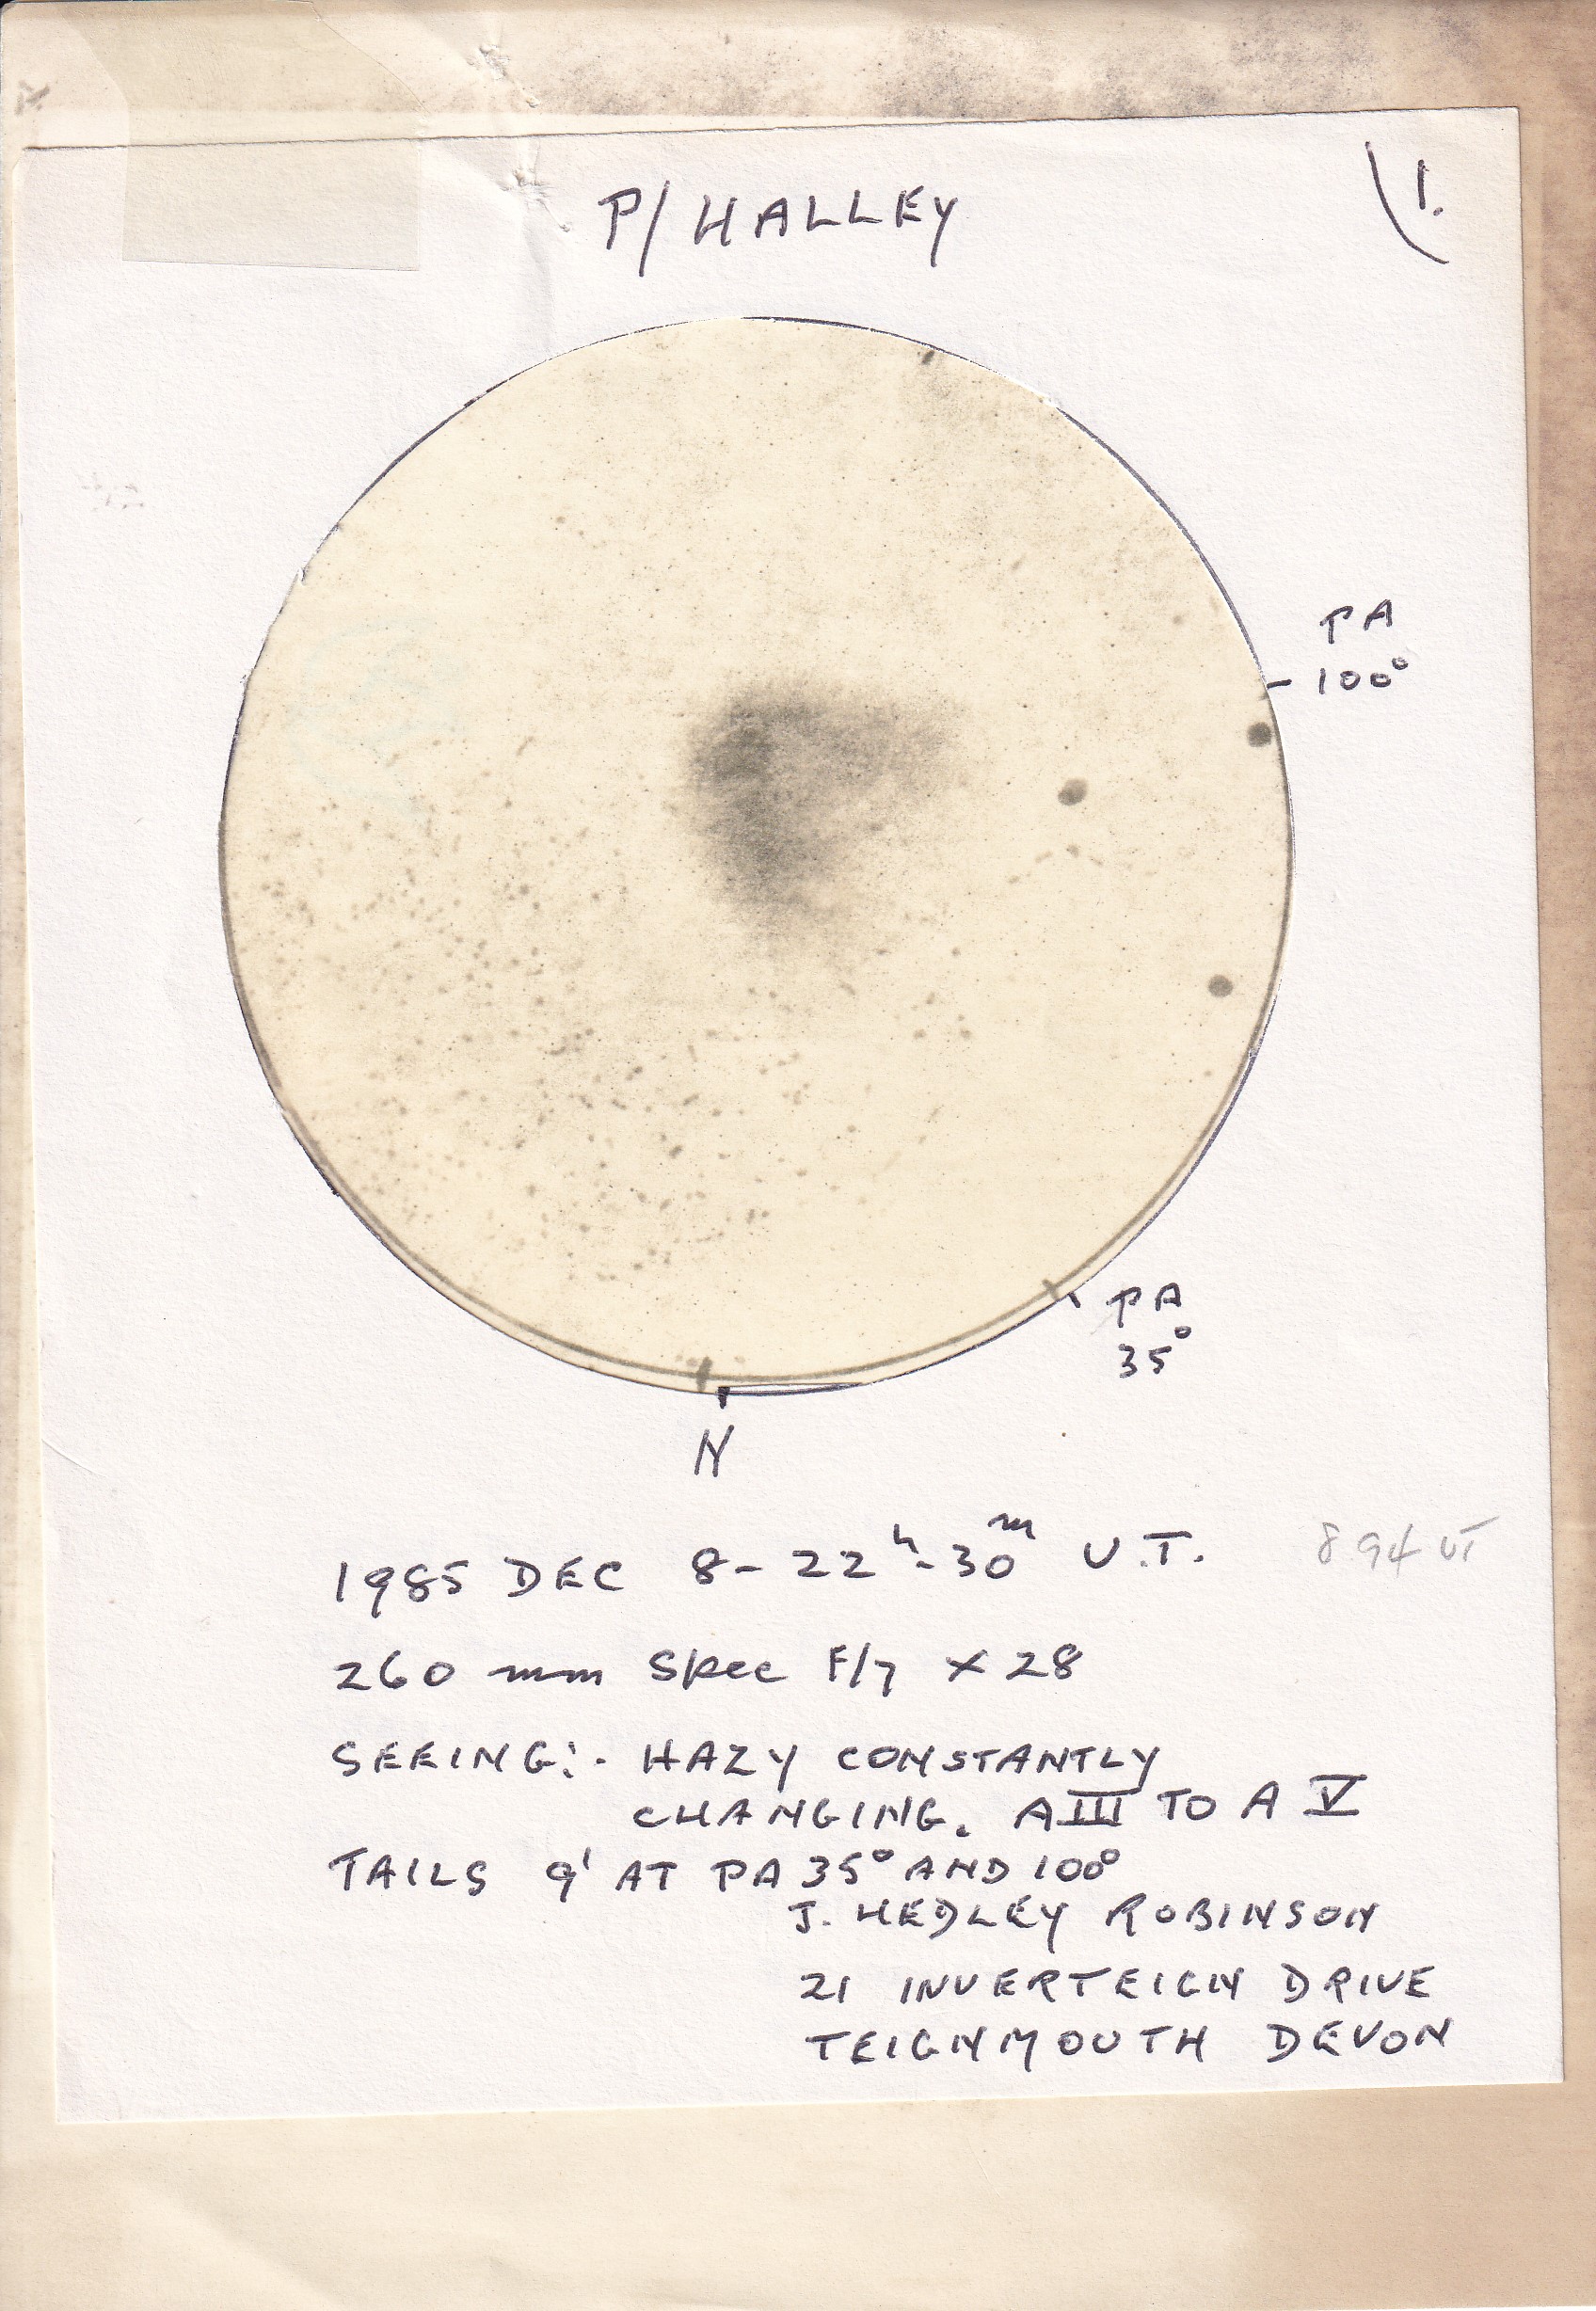 P/HALLEY
1.
PA
100°
PA
35°
N
1985 DEC 8-22ʰ-30ᵐ U.T.
8 94 UT
260 mm Spec F/7 x 28
SEEING:- HAZY CONSTANTLY
CHANGING. A III TO A V
TAILS 9' AT PA 35° AND 100°
J. HEDLEY ROBINSON
21 INVERTEIGN DRIVE
TEIGNMOUTH DEVON